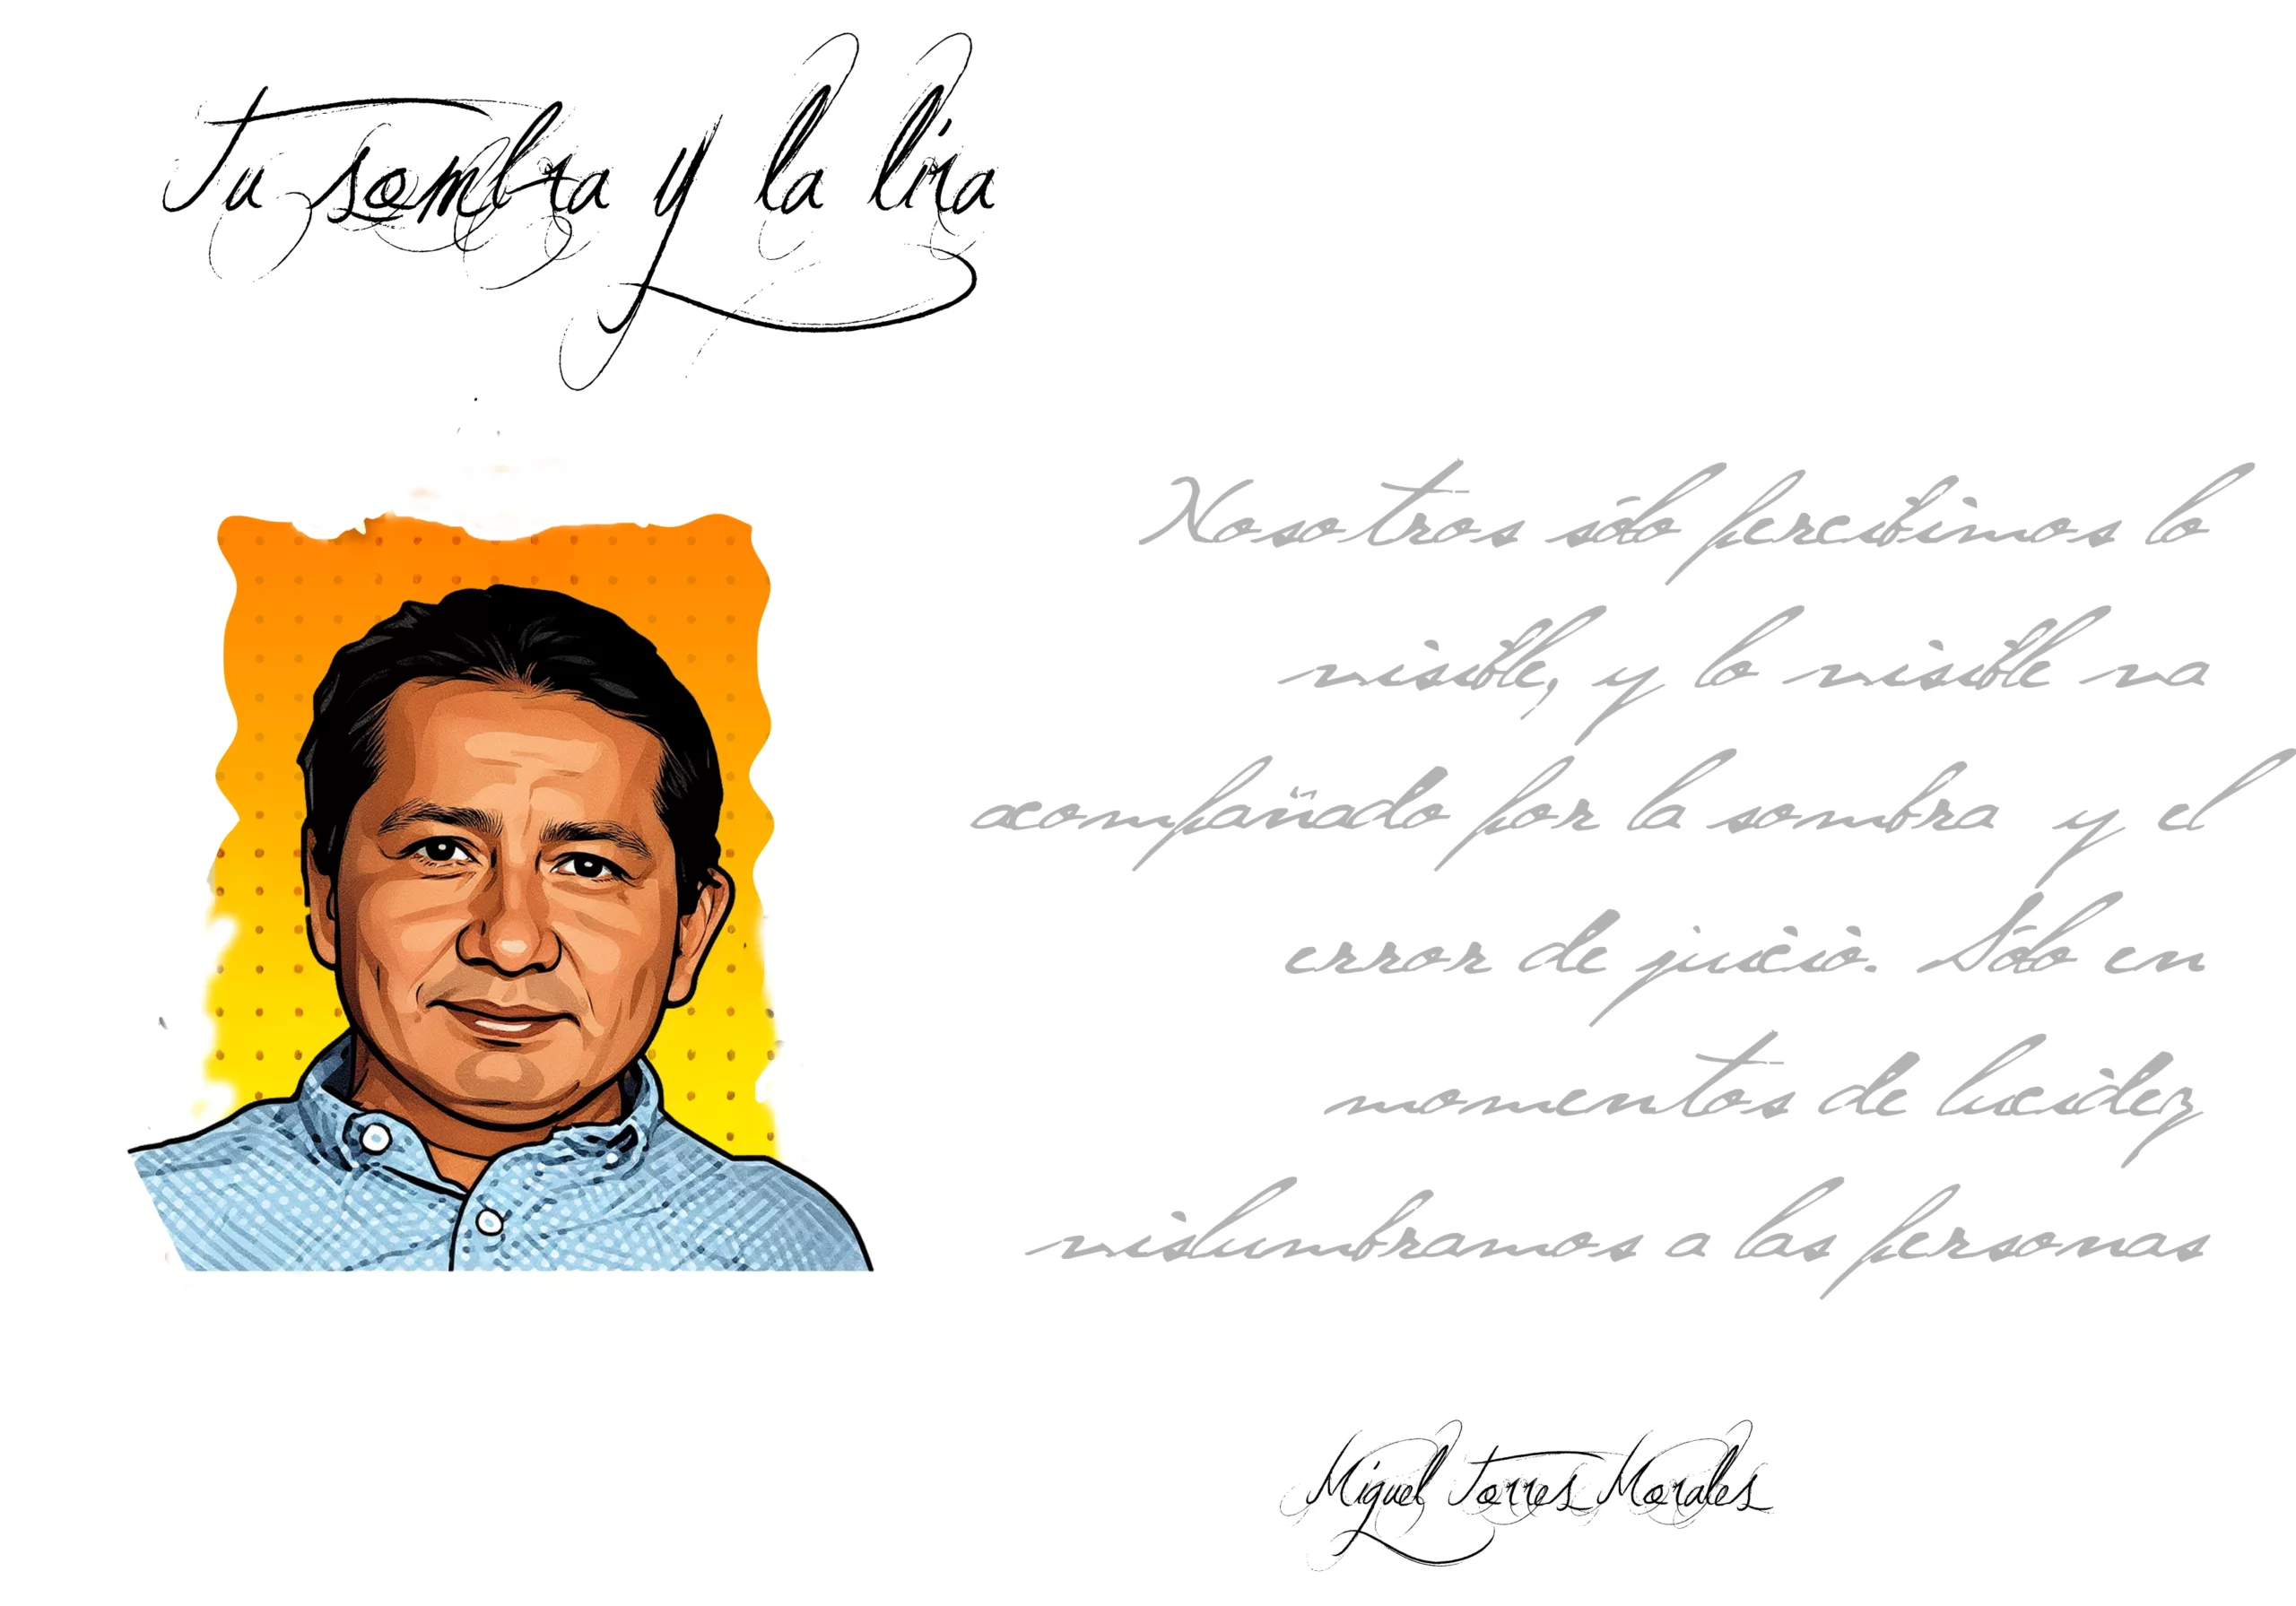 Tu sombra y la lira
Nosotros sólo percibimos lo
visible, y lo visible va
acompañado por la sombra y el
error de juicio. Sólo en
momentos de lucidez
vislumbramos a las personas
Miguel Torres Morales